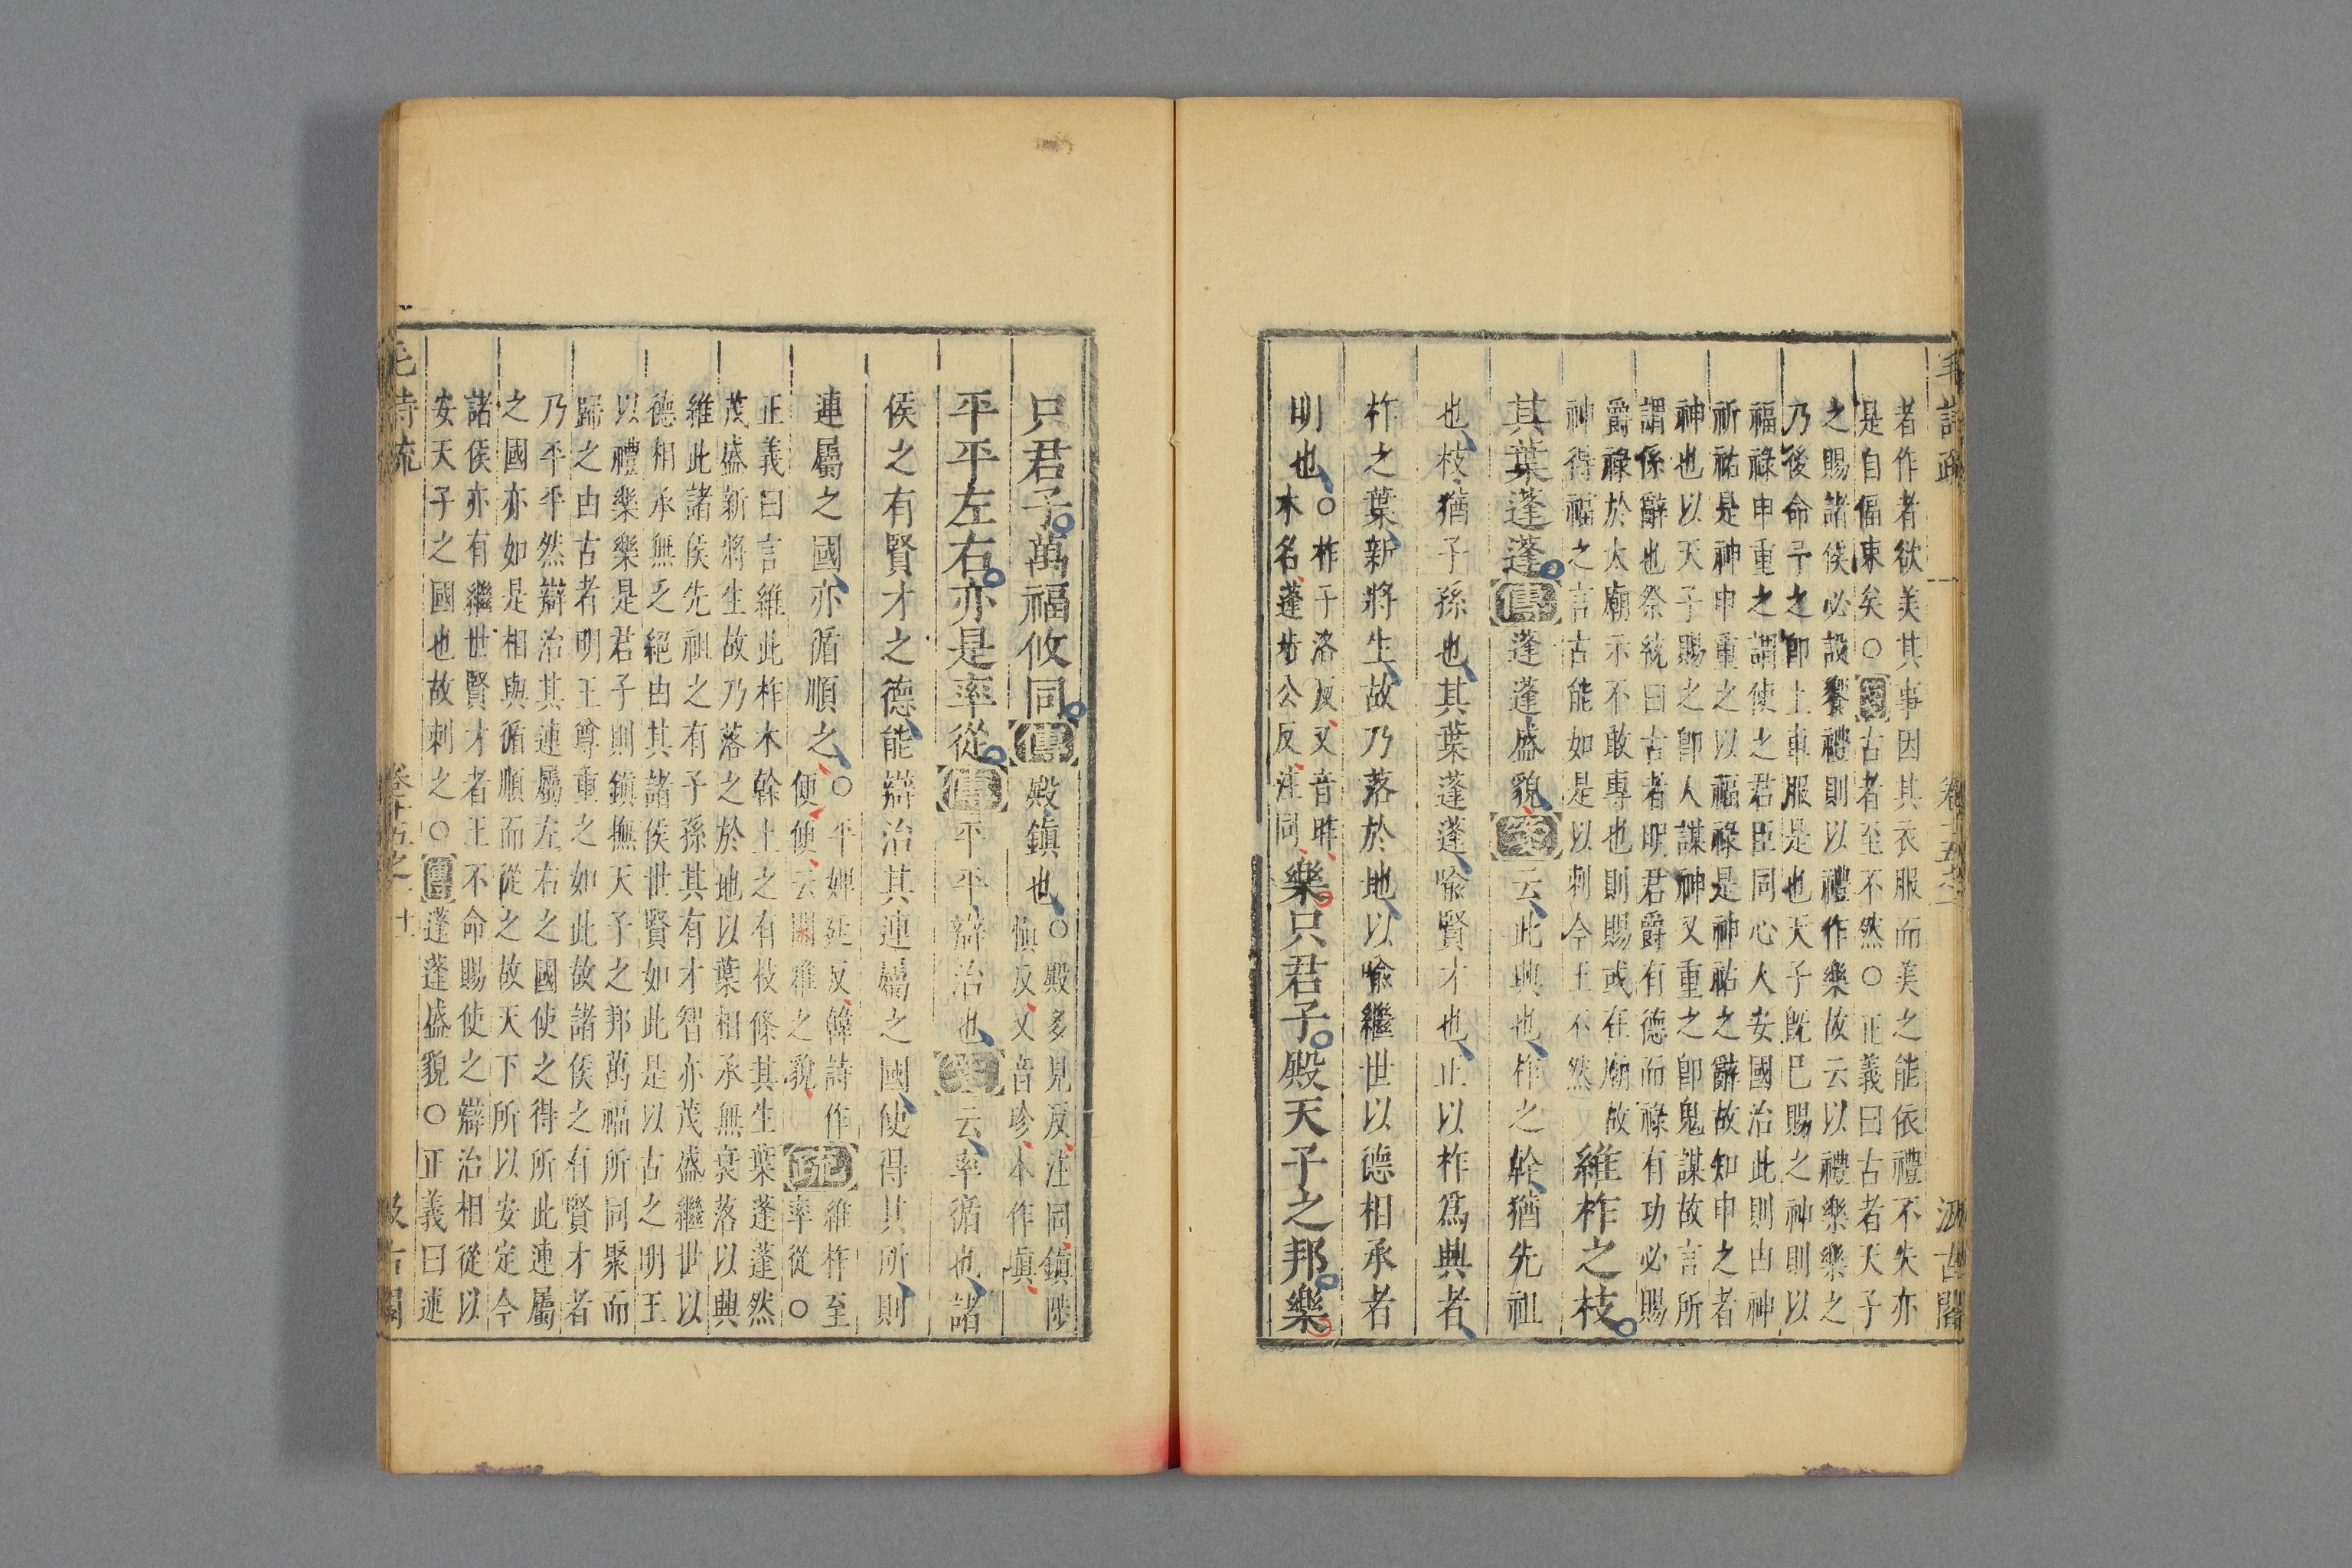 毛詩疏 卷十五之一 汲古閣
者作者欲美其事因其衣服而美之能依禮不失亦
是自偪束矣○箋古者至不然○正義曰古者天子
之賜諸侯必設饗禮則以禮作樂故云以禮樂樂之
乃後命予之卽上車服是也天子既巳賜之神則以
福祿申重之謂使之君臣同心人安國治此則由神
祈祐是神申重之以福祿是神祐之辭故知申之者
神也以天子賜之卽人謀神又重之卽鬼謀故言所
謂係辭也祭統曰古者明君爵有德而祿有功必賜
爵祿於太廟示不敢專也則賜或在廟故
神得福之言古能如是以刺今王不然
維柞之枝
其葉蓬蓬傳蓬蓬盛貌箋云此興也柞之幹猶先祖
也枝猶子孫也其葉蓬蓬喻賢才也正以柞爲興者
柞之葉新將生故乃落於地以喻繼世以德相承者
明也
○柞子洛反又音昨
木名蓬步公反注同
樂只君子殿天子之邦樂
只君子萬福攸同傳殿鎮也
○殿多見反注同鎮陟
愼反又音珍本作塡
平平左右亦是率從傳平平辯治也箋云率循也諸
侯之有賢才之德能辯治其連屬之國使得其所則
連屬之國亦循順之
○平婢延反韓詩作
便便云閑雅之貌
疏
維柞至
率從○
正義曰言維此柞木幹上之有枝條其生葉蓬蓬然
茂盛新將生故乃落之於地以葉相承無衰落以興
維此諸侯先祖之有子孫其有才智亦茂盛繼世以
德相承無乏絕由其諸侯世賢如此是以古之明王
以禮樂樂是君子則鎮撫天子之邦萬福所同聚而
歸之由古者明王尊重之如此故諸侯之有賢才者
乃平平然辯治其連屬左右之國使之得所此連屬
之國亦如是相與循順而從之故天下所以安定今
諸侯亦有繼世賢才者王不命賜使之辯治相從以
安天子之國也故刺之○傳蓬蓬盛貌○正義曰連
毛詩疏 卷十五之一 十 汲古閣